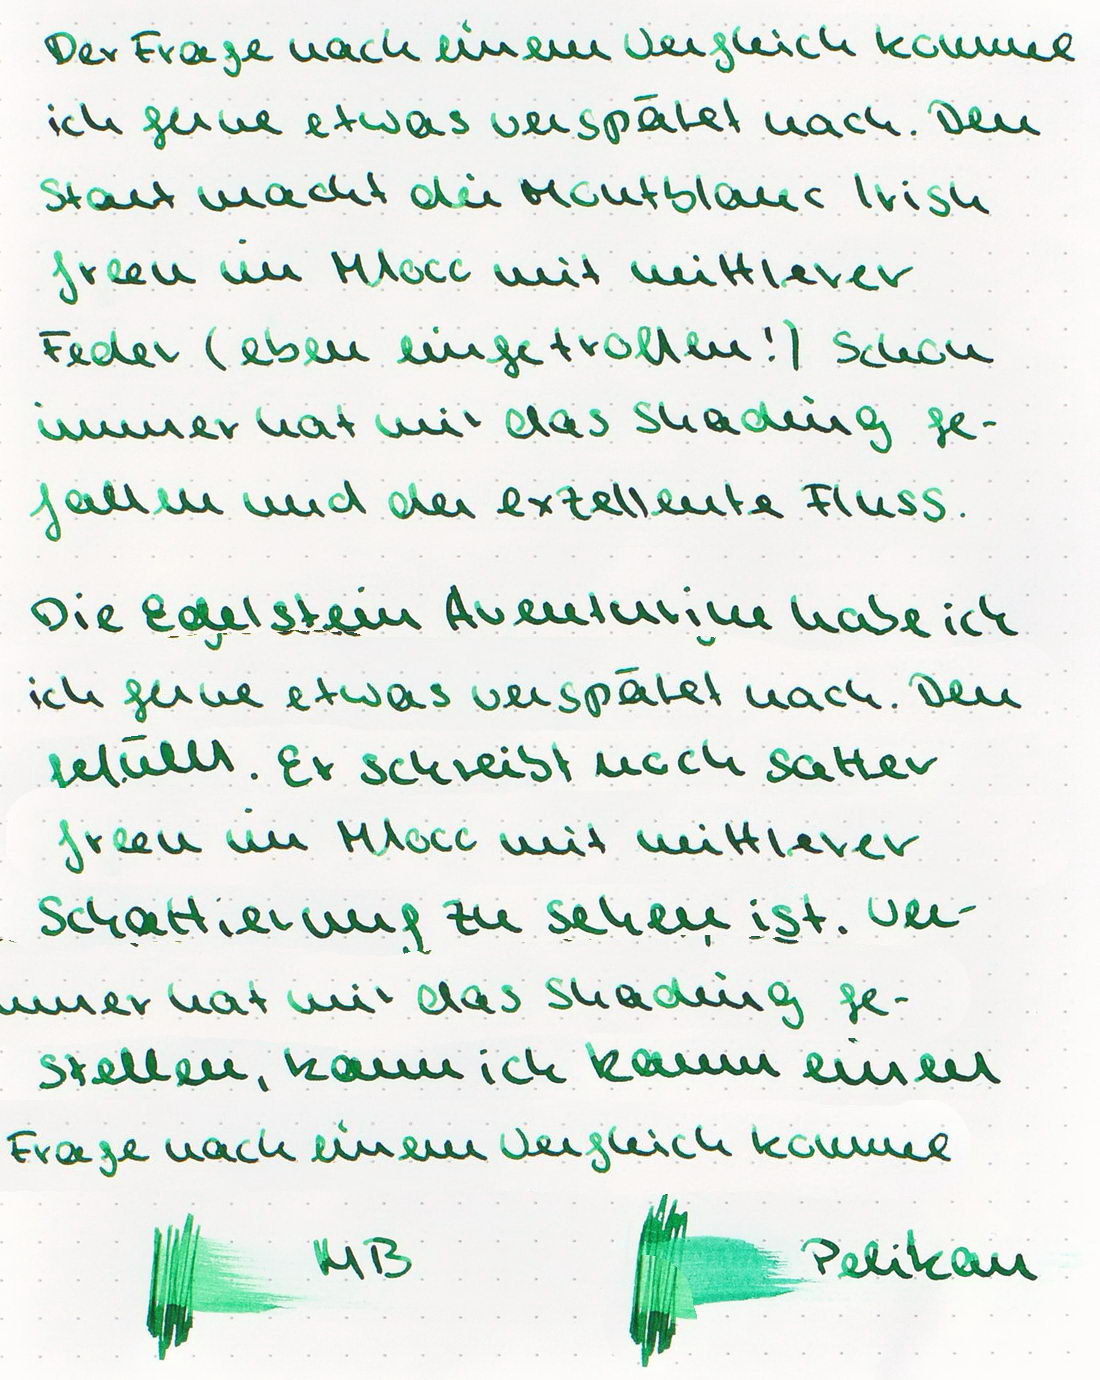 Der Frage nach einem Vergleich komme
ich gerne etwas verspätet nach. Den
Start macht die Montblanc Irish
green im M100C mit mittlerer
Feder (eben eingetroffen!) Schon
immer hat mir das Shading ge-
fallen und der exzellente Fluss.
Die Edelstein Aventurine habe ich
ich gerne etwas verspätet nach. Den
gefüllt. Er schreibt noch satter
green im mit mittlerer
Schattierung zu sehen ist. Ver-
mmer hat mir das Shading ge-
stellen, kann ich kaum einen
Frage nach einem Vergleich komme
MB Pelikan